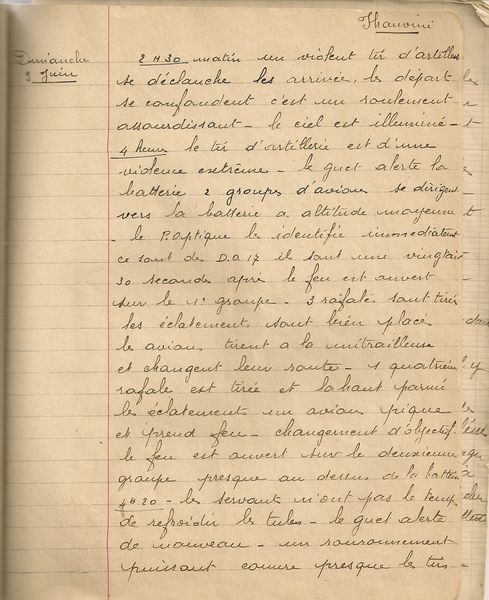 Thauvini
Dimanche
9 Juin
2 H 30 matin un violent tir d'artillerie
se déclanche les arrivée, les départ
se confondent c'est un roulement
assourdissant - le ciel est illuminé -
4 heures le tir d'artillerie est d'une
violence extrême - le guet alerte la
batterie 2 groupes d'avions se dirigent
vers la batterie a altitude moyenne
- le P.Optique les identifie immediatement
ce sont des D.O 17 il sont une vingtaine
30 secondes après le feu est ouvert
sur le 1er groupe - 3 rafales sont tirées
les éclatements sont bien placés
les avions tirent a la mitrailleuse
et changent leur route - 1 quatrième
rafale est tirée et la haut parmi
les éclatements un avion pique
et prend feu - changement d'objectif
le feu est ouvert sur le deuxieme
groupe presque au dessus de la batterie
4H20 - les servants n'ont pas le temps
de refroidir les tubes - le guet alerte
de nouveau - un ronronnement
puissant couvre presque le tirs -